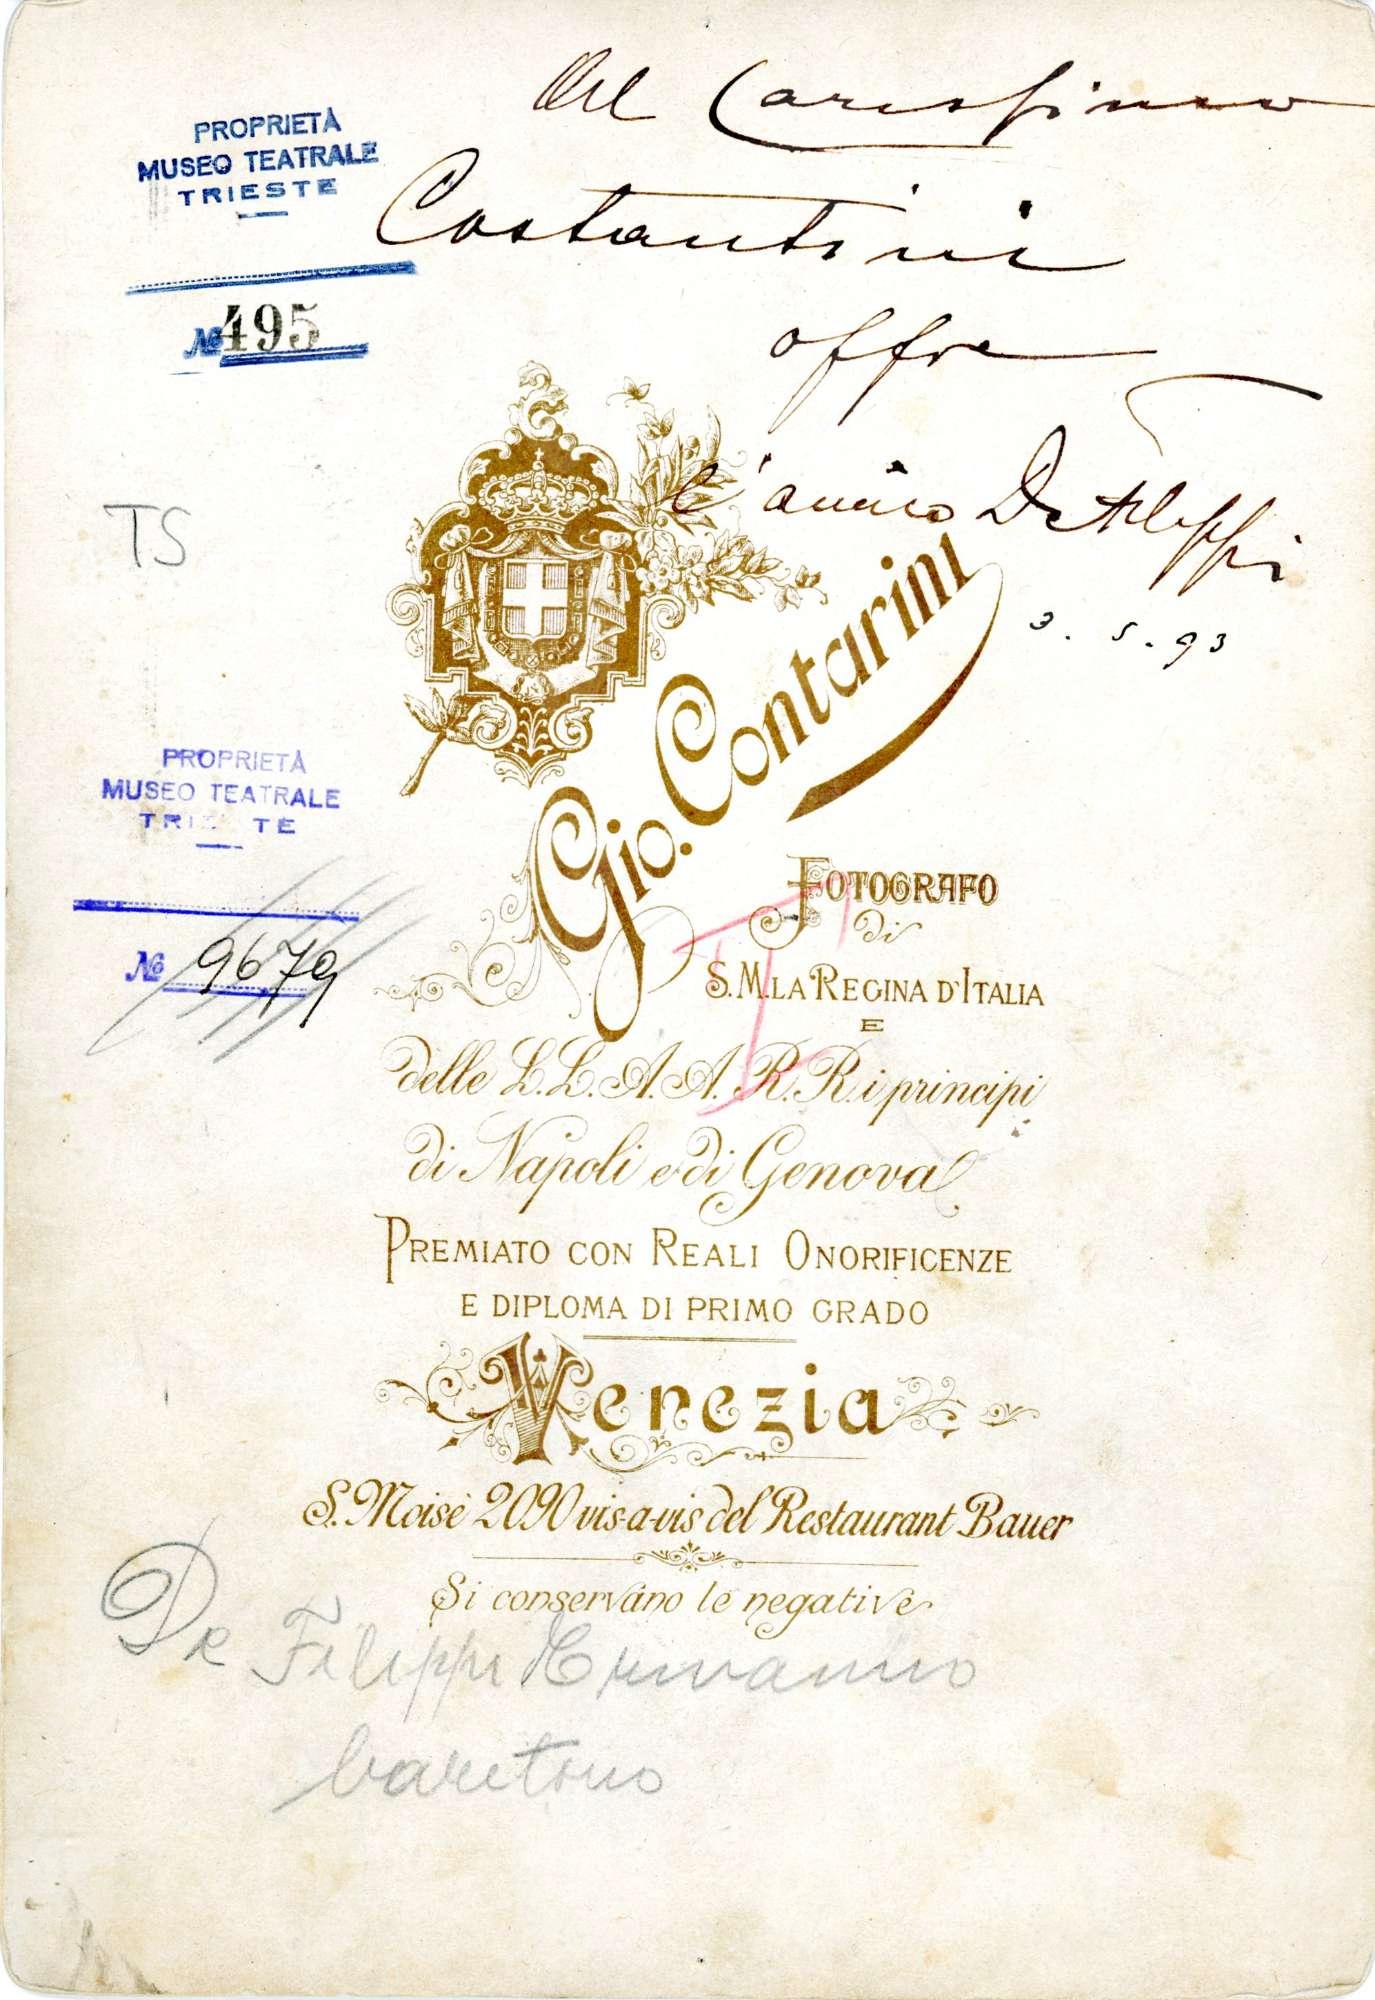 Al Carissimo
Costantini
offre
l'amico De Filippi
3. 5. 93
PROPRIETÀ
MUSEO TEATRALE
TRIESTE
№ 495
TS
PROPRIETÀ
MUSEO TEATRALE
TRI TE
№ 9679
Gio. Contarini
FOTOGRAFO
di
S. M. LA REGINA D'ITALIA
E
delle L.L. A.A. R.R. i principi
di Napoli e di Genova
PREMIATO CON REALI ONORIFICENZE
E DIPLOMA DI PRIMO GRADO
Venezia
S. Moisè 2090 vis-a-vis del Restaurant Bauer
Si conservano le negative
De Filippi Ermanno
baritono